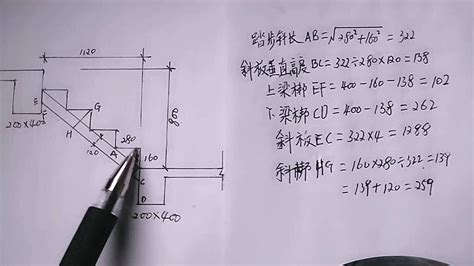 1120
E
F
G
H
200×400
120
A
280
B
160
C
D
200×400
800
踏步斜长 AB=√280²+160²=322
斜放垂直高度BC=322÷280×120=138
上梁梆 EF=400-160-138=102
下梁梆 CD=400-138=262
斜放EC=322×4=1288
斜梆 HG=160×280÷322=139
=139+120=259